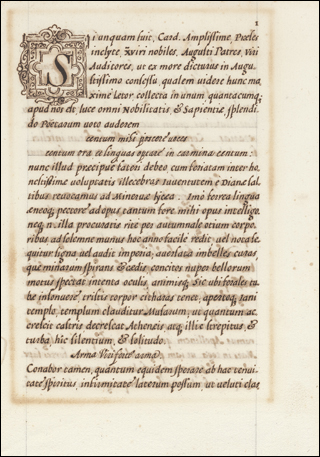 1
Si unquam fuit, Card. Amplissime, Præles
inclyte, viri nobiles, Augusti Patres, Viri
Auditores, ut ex more dicturus in Augu
stissimo consessu, qualem videre hunc ma
xime letor collecta in unum quancacumq;
apud nos est luce omni Nobilitatis, & Sapientiæ, splendi
do Poetarum voto auderem
centum mihi poscere voces
centum ora et linguas optare in carmina centum:
nunc illud præcipue fateri debeo, cum feriatam inter ho
nestissimæ voluptatis illecebras Iuventutem è Dianæ sal
tibus revocamus ad Minervæ
æneoq; pectore ad opus cantum fore mihi opus intelligo,
neq; n. illa procuratis rite per autumnale otium corpo,
ribus ad solemne munus hoc anno facile redit, vel vocata se,
quitur signa, vel audit imperia; avertata imbelles curas,
quæ minarum spirans & cædis, concitos nuper bellorum
motus spectat intenta oculis, animisq; Sic ubi
intonuere, tristis corpit citharas tenet, aperto q; Iani
templo, templum clauditur Musarum, ut quantum ac
crescit castris decrescat Atheneis atq; illic strepitus, &
turba, hic silentium, & solitudo.
Arma
Conabor tamen, quantum equidem sperare ab hac
tate spiritus, infirmitate laterum possum, ut veluti